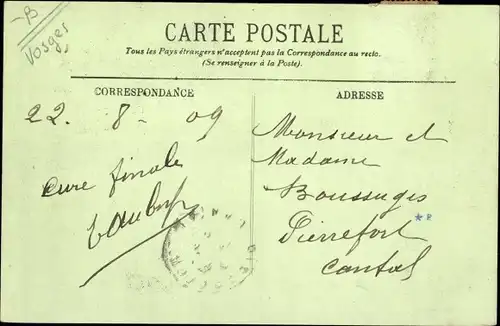 -B
Vosges
CARTE POSTALE
Tous les Pays étrangers n'acceptent pas la Correspondance au recto.
(Se renseigner à la Poste).
CORRESPONDANCE
22. 8 - 09
cure finale
ADRESSE
Monsieur et
Madame
Boussuges
Pierrefort
Cantal